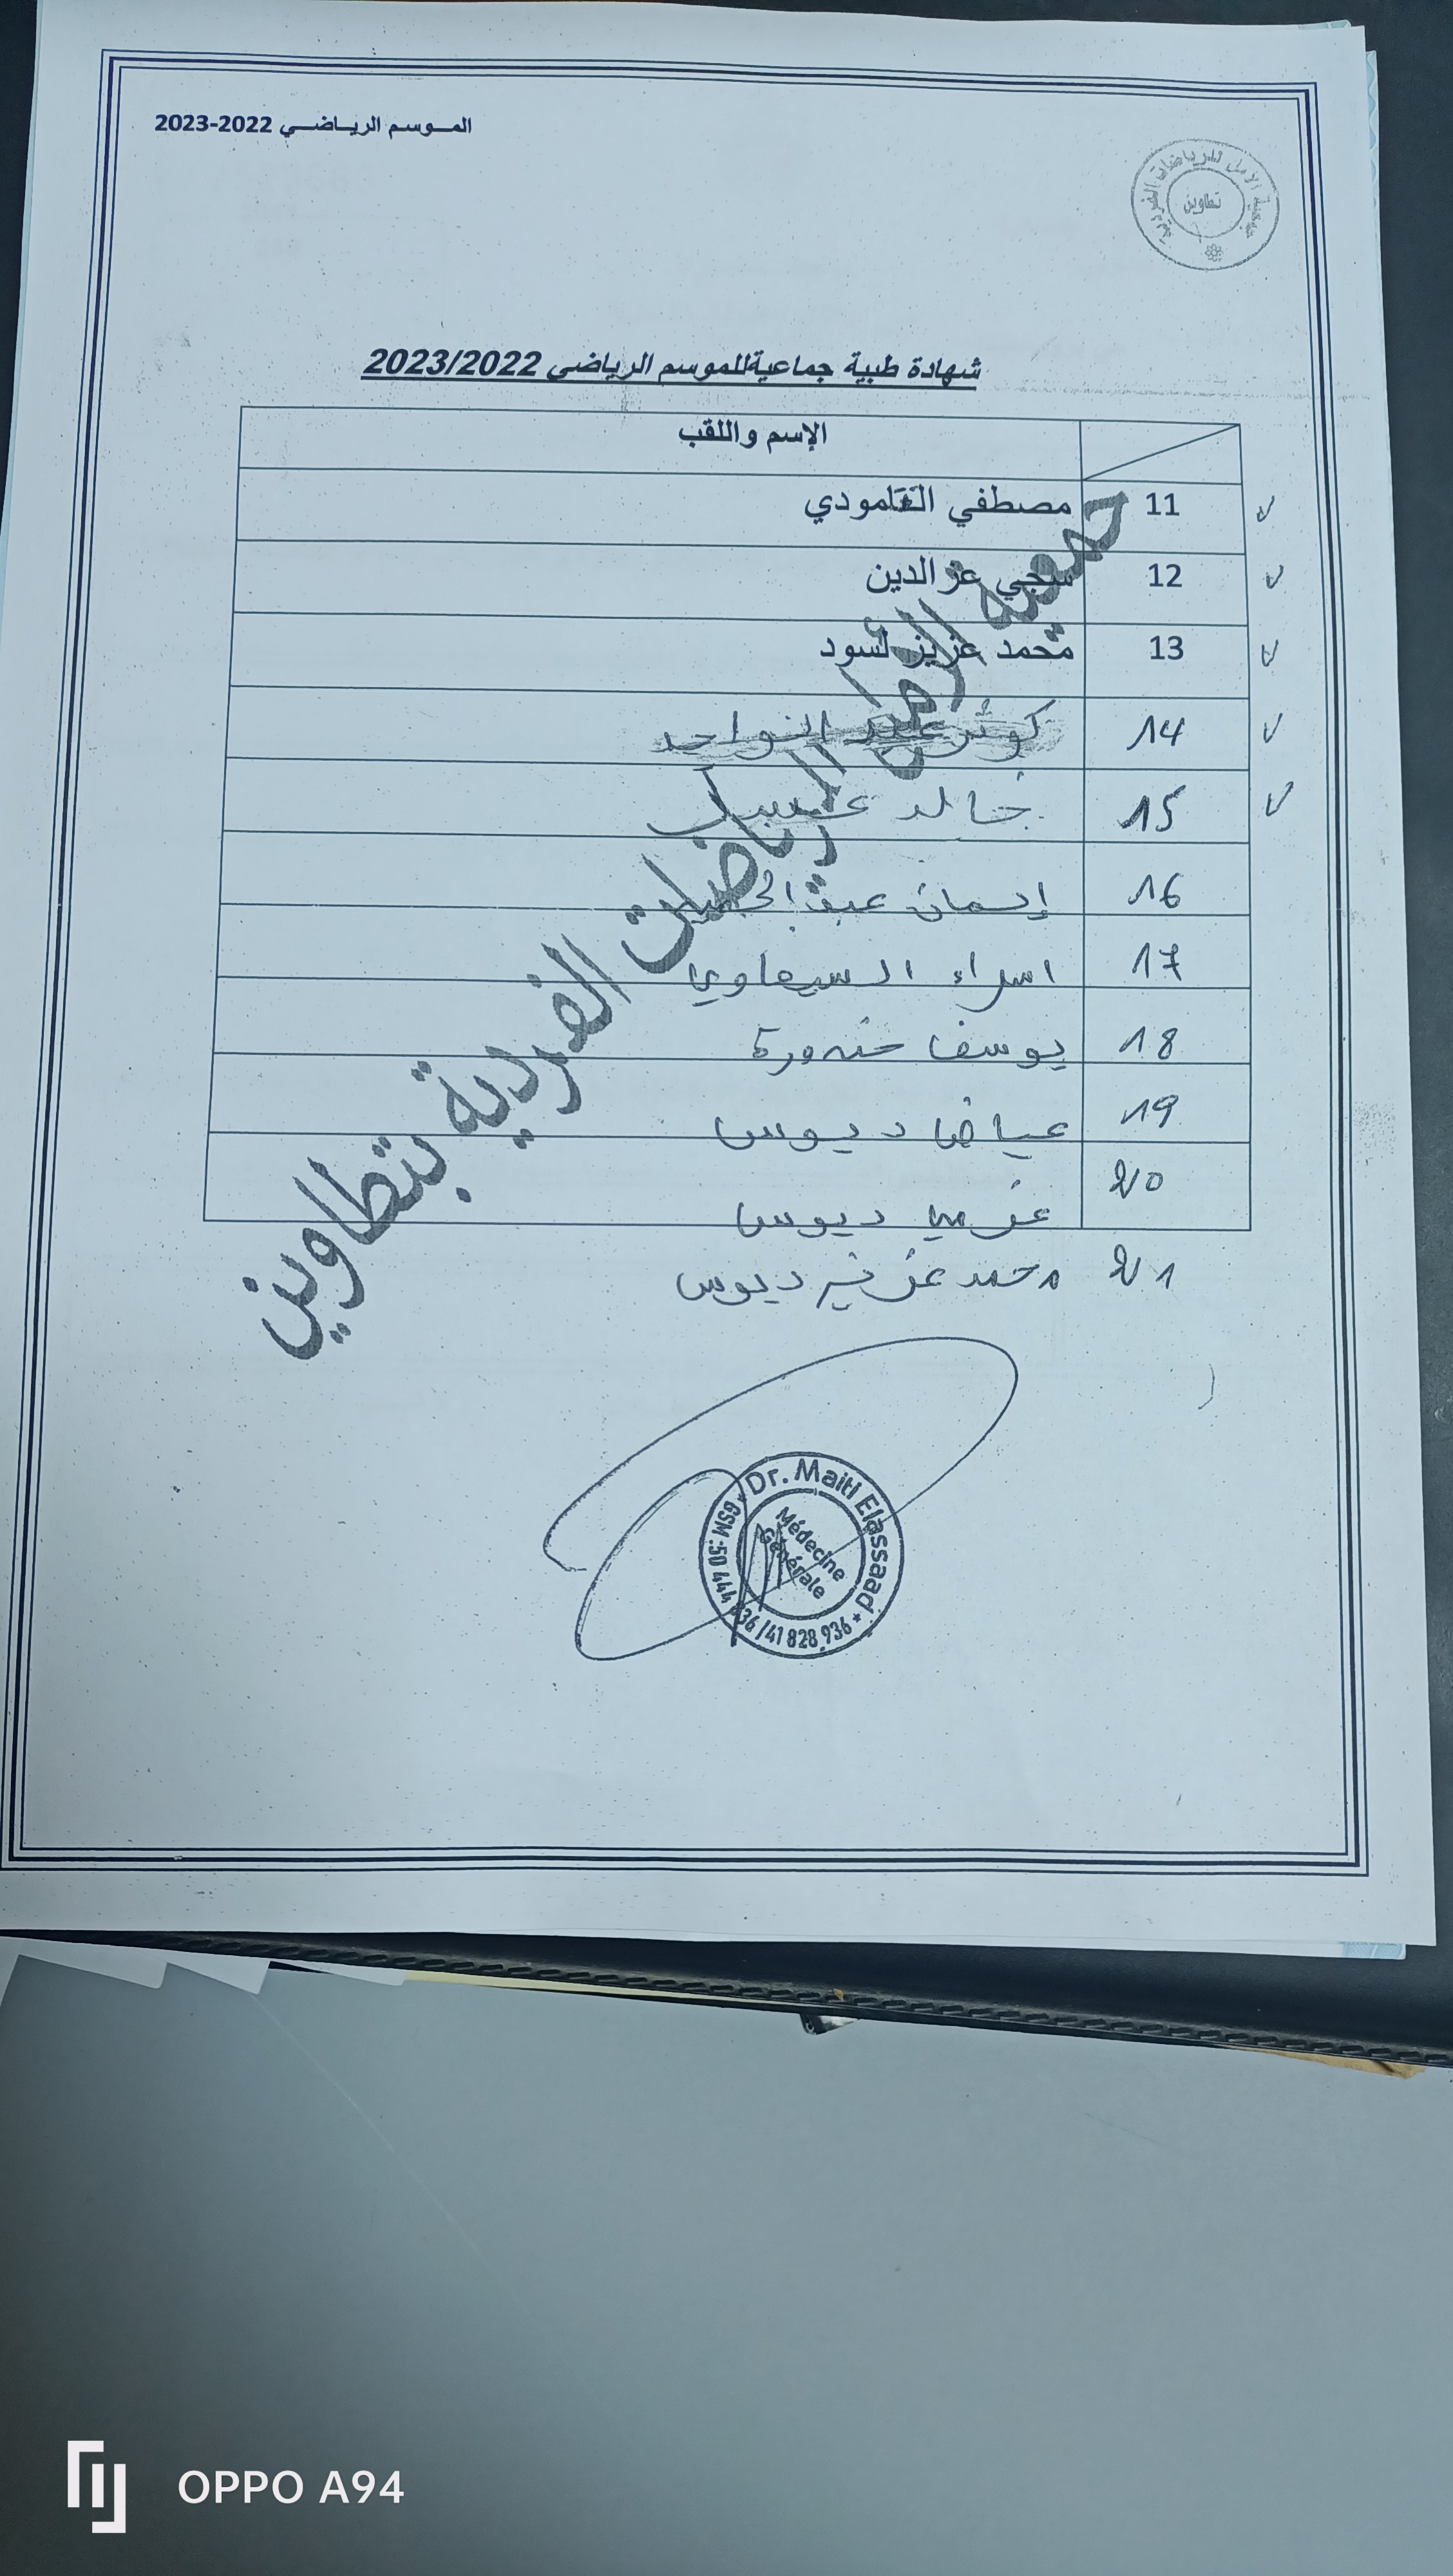 الموسم الرياضي 2022-2023
جمعية الأمل للرياضات الفردية
تطاوين
شهادة طبية جماعيةللموسم الرياضي 2023/2022
الإسم واللقب
11 مصطفي
12 عز الدين
13 محمد عزيز لسود
14 كوثر عبد الواحد
15 خالد
16 إيمان
17 اسراء السيفاوي
18 يوسف خنورة
19 عياض ديوس
20 عزمي ديوس
21 محمد عزيز ديوس
جمعية الأمل الرياضات الفردية بتطاوين
Dr. Maiti Elassaad
Médecine
Générale
GSM :50 444 936 /41 828 936 *
OPPO A94